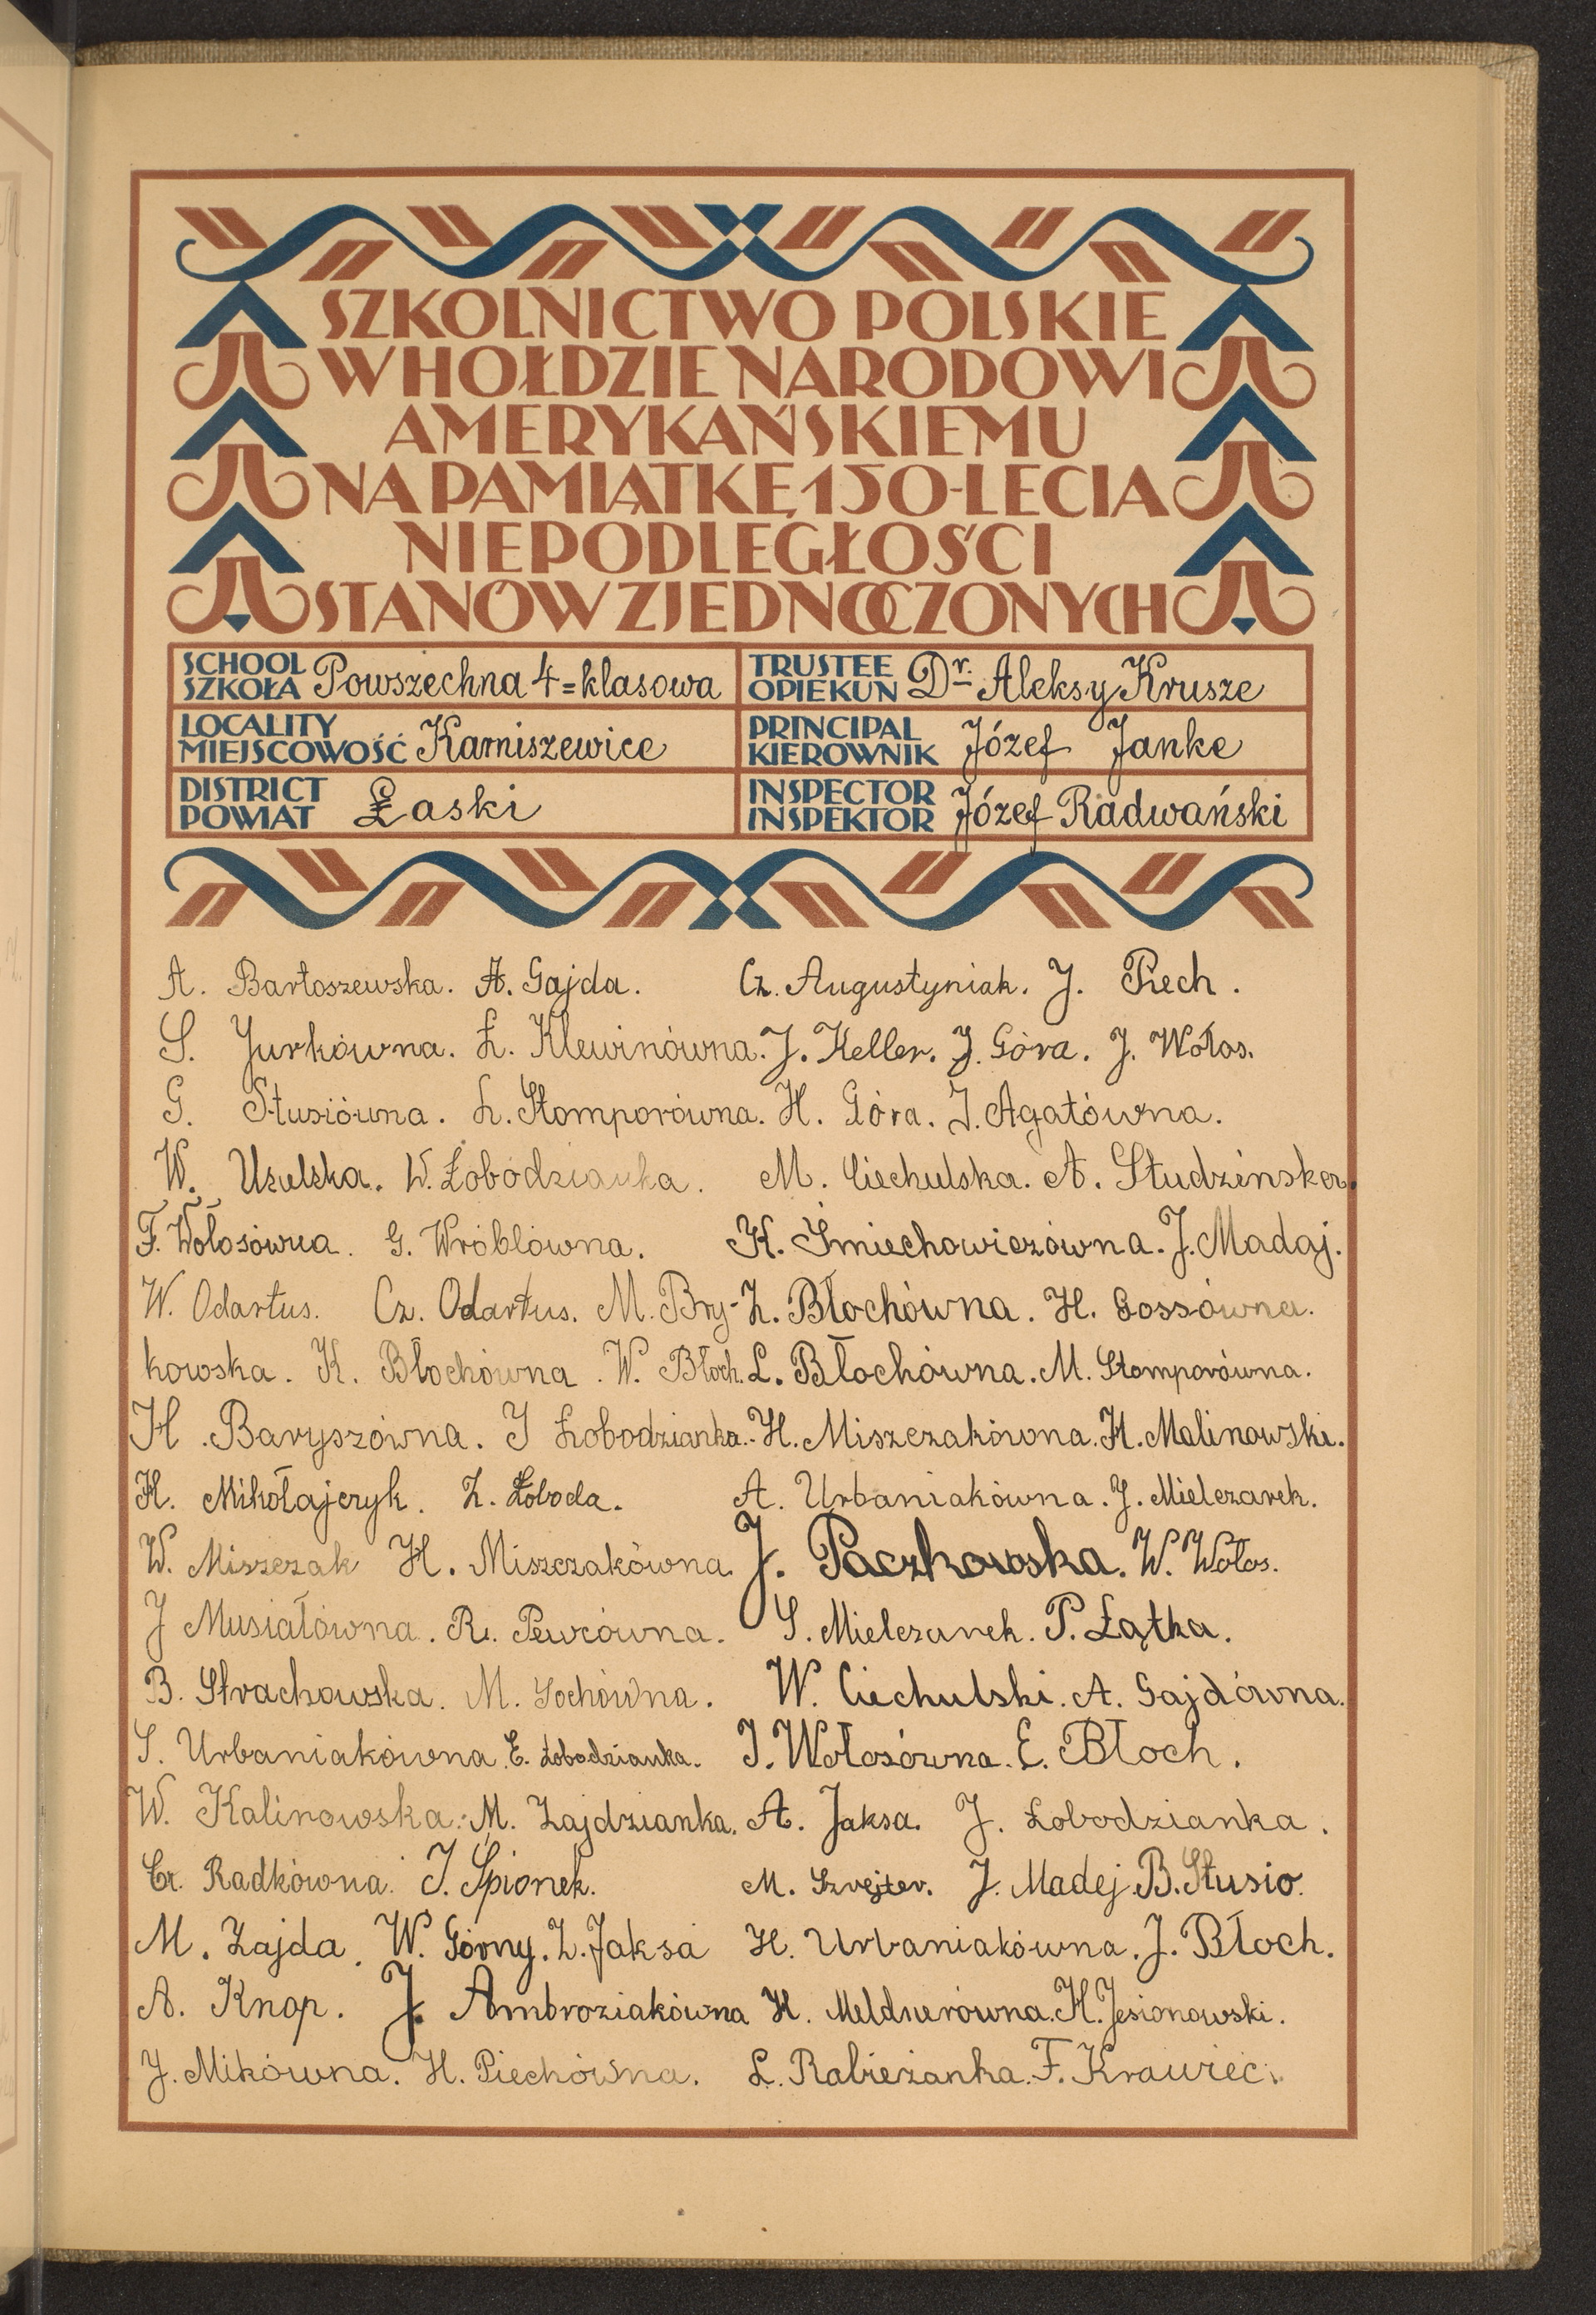 SZKOLNICTWO POLSKIE
W HOŁDZIE NARODOWI
AMERYKAŃSKIEMU
NA PAMIĄTKĘ 150-LECIA
NIEPODLEGŁOŚCI
STANÓW ZJEDNOCZONYCH
SCHOOL SZKOŁA Powszechna 4=klasowa
TRUSTEE OPIEKUN Dr. Aleksy Krusze
LOCALITY MIEJSCOWOŚĆ Karniszewice
PRINCIPAL KIEROWNIK Józef Janke
DISTRICT POWIAT Łaski
INSPECTOR INSPEKTOR Józef Radwański
A. Bartoszewska. A. Gajda. Cz. Augustyniak. J. Piech.
S. Jurkówna. Ł. Klewinówna. J. Keller. J. Góra. J. Wołos.
G. Stusiówna. Ł. Stomporówna. H. Góra. J. Agatówna.
W. Uzulska. W. Łobodzianka. M. Ciechulska. A. Studzińska.
F. Wołosówna. G. Wróblówna. K. Śmiechowiczówna. J. Madaj.
W. Odartus. Cz. Odartus. M. Bry- Z. Błochówna. H. Gossówna.
kowska. K. Błochówna. W. Błoch. L. Błochówna. M. Stomporówna.
H. Baryszówna. J Łobodzianka. H. Miszczakówna. H. Malinowski.
H. Mikołajczyk. Z. Łoboda. A. Urbaniakówna. J. Mielczarek.
W. Miszczak H. Miszczakówna. J. Paczkowska. W. Wołos.
J Musiałówna. R. Pewcówna. S. Mielczarek. P. Łątka.
B. Strachowska. M. Sochówna. W. Ciechulski. A. Gajdówna.
S. Urbaniakówna. E. Łobodzianka. J. Wołosówna. E. Błoch.
W. Kalinowska. M. Zajdzianka. A. Jaksa. J. Łobodzianka.
Cz. Radkówna. J. Śpionek. M. Szvejter. J. Madej. B. Stusio.
M. Zajda. W. Górny. Z. Jaksa H. Urbaniakówna. J. Błoch.
A. Knop. J. Ambroziakówna H. Meldnerówna. H. Jesionowski.
J. Mikówna. H. Piechówna. L. Rabieżanka. F. Krawiec.